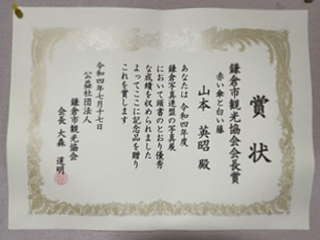 賞状
鎌倉市観光協会会長賞
赤い傘と白い藤
山本 英昭 殿
あなたは 令和四年度
鎌倉写真連盟の写真展
において頭書のとおり優秀
な成績を収められました
よってここに記念品を贈り
これを賞します
令和四年七月十七日
公益社団法人
鎌倉市観光協会
会長 大森 道明